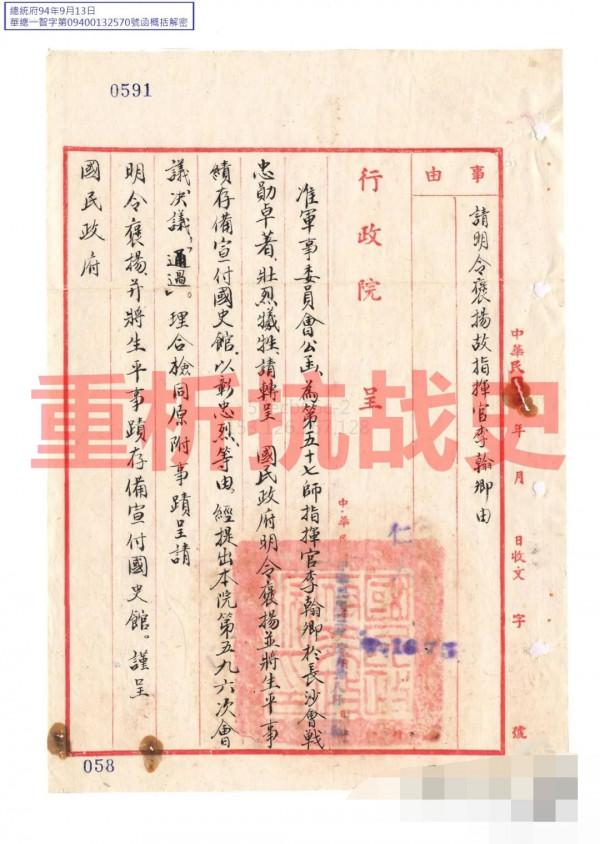 總統府94年9月13日
華總一智字第09400132570號函概括解密
0591
事由
請明令褒揚故指揮官李翰卿由
中華民 年 月 日收文 字 號
行政院 呈
准軍事委員會公函、為第五十七師指揮官李翰卿於長沙會戰
忠勛卓著、壯烈犧牲、請轉呈 國民政府明令褒揚並將生平事
績存備宣付國史館、以彰忠烈、等由、經提出本院第五九六次會
議決議「通過」。理合檢同原附事蹟呈請
明令褒揚、并將生平事蹟存備宣付國史館。謹呈
國民政府
重析抗战史
仁
058